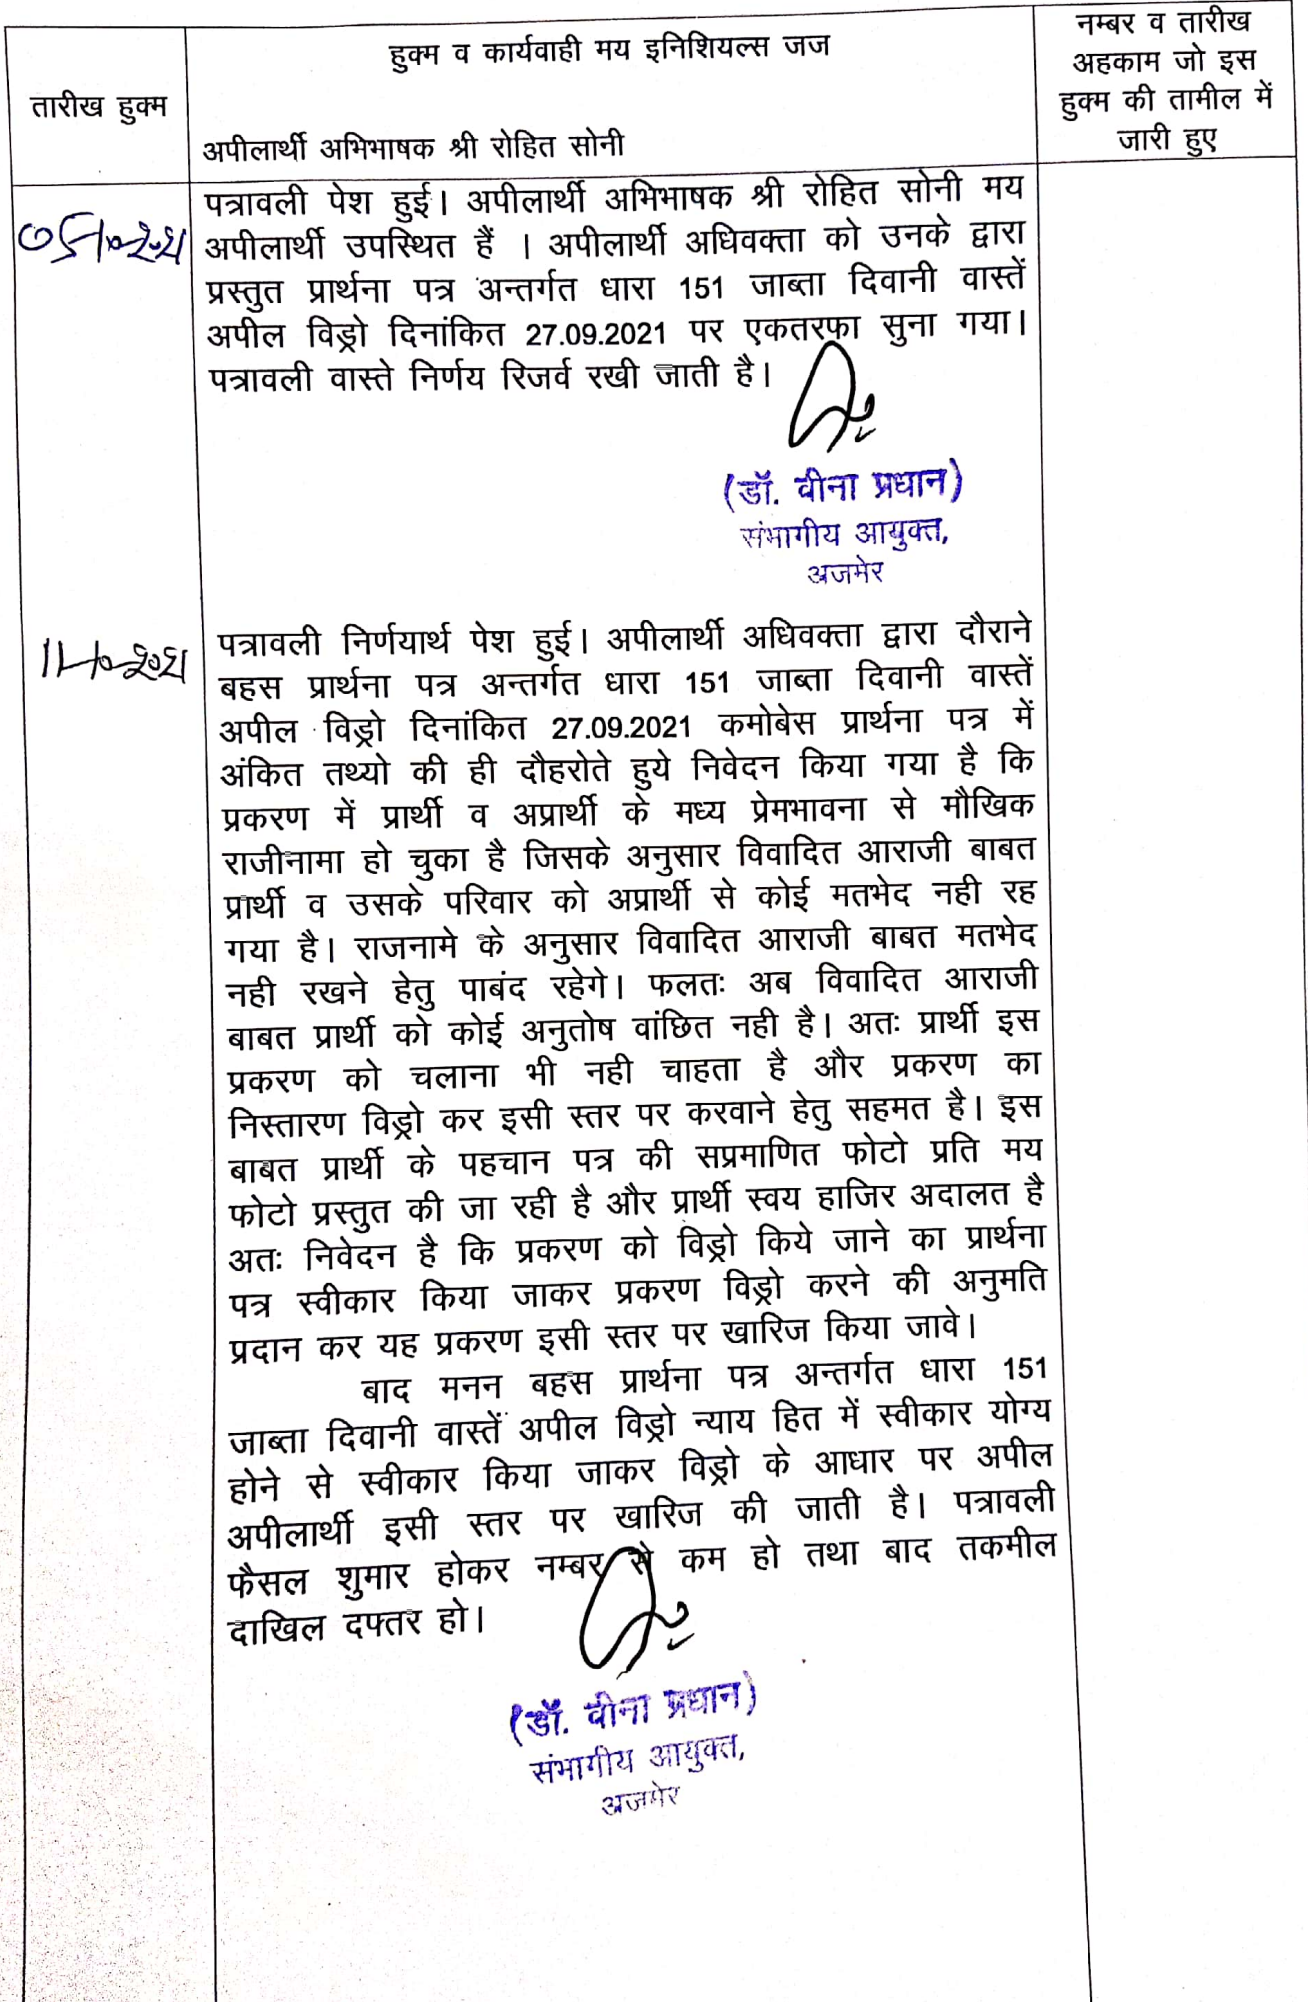 तारीख हुक्म
हुक्म व कार्यवाही मय इनिशियल्स जज
अपीलार्थी अभिभाषक श्री रोहित सोनी
नम्बर व तारीख
अहकाम जो इस
हुक्म की तामील में
जारी हुए
पत्रावली पेश हुई। अपीलार्थी अभिभाषक श्री रोहित सोनी मय
अपीलार्थी उपस्थित हैं । अपीलार्थी अधिवक्ता को उनके द्वारा
प्रस्तुत प्रार्थना पत्र अन्तर्गत धारा 151 जाब्ता दिवानी वास्तें
अपील विड्रो दिनांकित 27.09.2021 पर एकतरफा सुना गया।
पत्रावली वास्ते निर्णय रिजर्व रखी जाती है।
(डॉ. वीना प्रधान)
संभागीय आयुक्त,
अजमेर
11-10-2021
पत्रावली निर्णयार्थ पेश हुई। अपीलार्थी अधिवक्ता द्वारा दौराने
बहस प्रार्थना पत्र अन्तर्गत धारा 151 जाब्ता दिवानी वास्तें
अपील विड्रो दिनांकित 27.09.2021 कमोबेस प्रार्थना पत्र में
अंकित तथ्यो की ही दौहरोते हुये निवेदन किया गया है कि
प्रकरण में प्रार्थी व अप्रार्थी के मध्य प्रेमभावना से मौखिक
राजीनामा हो चुका है जिसके अनुसार विवादित आराजी बाबत
प्रार्थी व उसके परिवार को अप्रार्थी से कोई मतभेद नही रह
गया है। राजनामे के अनुसार विवादित आराजी बाबत मतभेद
नही रखने हेतु पाबंद रहेगे। फलतः अब विवादित आराजी
बाबत प्रार्थी को कोई अनुतोष वांछित नही है। अतः प्रार्थी इस
प्रकरण को चलाना भी नही चाहता है और प्रकरण का
निस्तारण विड्रो कर इसी स्तर पर करवाने हेतु सहमत है। इस
बाबत प्रार्थी के पहचान पत्र की सप्रमाणित फोटो प्रति मय
फोटो प्रस्तुत की जा रही है और प्रार्थी स्वय हाजिर अदालत है
अतः निवेदन है कि प्रकरण को विड्रो किये जाने का प्रार्थना
पत्र स्वीकार किया जाकर प्रकरण विड्रो करने की अनुमति
प्रदान कर यह प्रकरण इसी स्तर पर खारिज किया जावे।
बाद मनन बहस प्रार्थना पत्र अन्तर्गत धारा 151
जाब्ता दिवानी वास्तें अपील विड्रो न्याय हित में स्वीकार योग्य
होने से स्वीकार किया जाकर विड्रो के आधार पर अपील
अपीलार्थी इसी स्तर पर खारिज की जाती है। पत्रावली
फैसल शुमार होकर नम्बर से कम हो तथा बाद तकमील
दाखिल दफ्तर हो।
(डॉ. वीना प्रधान)
संभागीय आयुक्त,
अजमेर